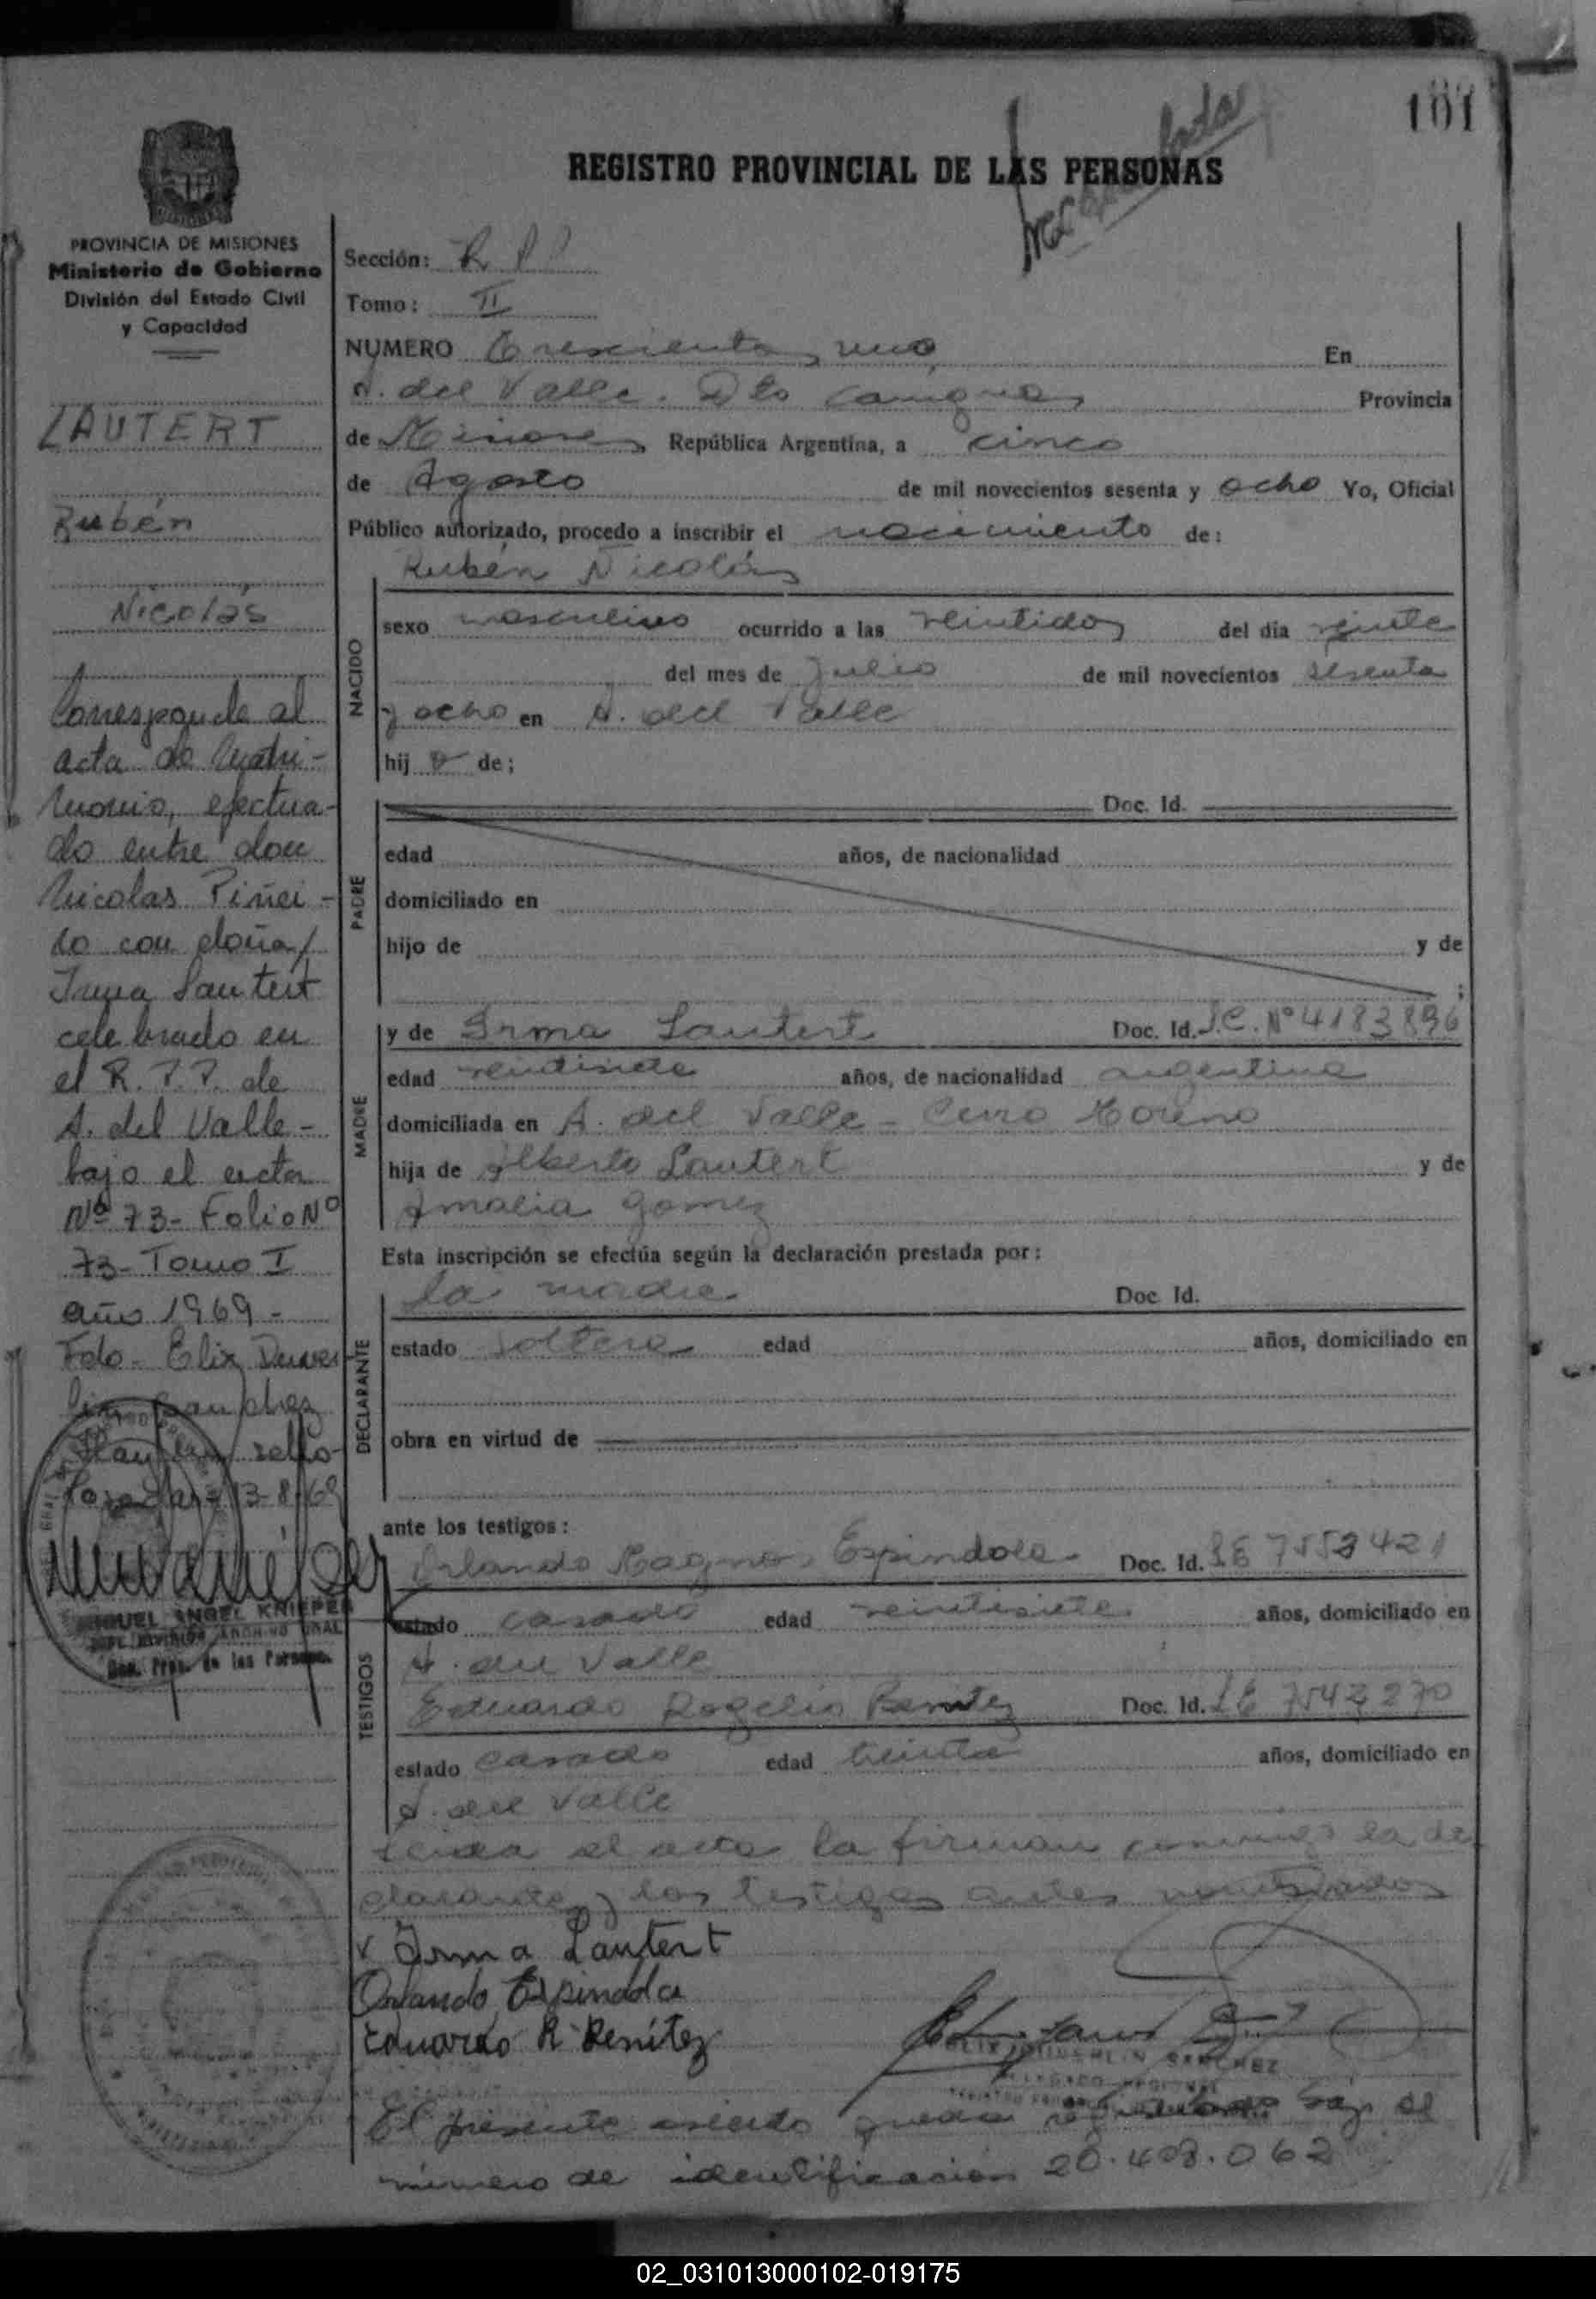 101
REGISTRO PROVINCIAL DE LAS PERSONAS
PROVINCIA DE MISIONES
Ministerio de Gobierno
División del Estado Civil
y Capacidad
LAUTERT
Rubén
Nicolás
Corresponde al
acta de Matri-
monio, efectua-
do entre don
Nicolas Piñei-
ro con doña
Irma Lautert
celebrado en
el R.P.P. de
A. del Valle-
bajo el acta
Nº 73- Folio Nº
73- Tomo I
año 1969-
Fdo- Elix
sello-
13-8-69
MIGUEL ANGEL KNIEPER
Sección: R P P
Tomo: II
NUMERO Trescientos uno En
A. del Valle. Dto Cainguas Provincia
de Misiones República Argentina, a cinco
de Agosto de mil novecientos sesenta y ocho Yo, Oficial
Público autorizado, procedo a inscribir el nacimiento de:
Rubén Nicolás
NACIDO
sexo masculino ocurrido a las veintidos del día veinte
del mes de Julio de mil novecientos sesenta
y ocho en A. del Valle
hij o de;
PADRE
Doc. Id.
edad años, de nacionalidad
domiciliado en
hijo de y de
;
MADRE
y de Irma Lautert Doc. Id. L.C. Nº 4183896
edad veintisiete años, de nacionalidad argentina
domiciliada en A. del Valle - Cerro Moreno
hija de Alberto Lautert y de
Amalia Gomez
Esta inscripción se efectúa según la declaración prestada por:
DECLARANTE
la madre Doc. Id.
estado Soltera edad años, domiciliado en
obra en virtud de
ante los testigos:
TESTIGOS
Orlando Magno Espindola Doc. Id. LE 7553421
estado casado edad veintisiete años, domiciliado en
A. del Valle
Eduardo Rogelio Benitez Doc. Id. LE 7543270
estado casado edad treinta años, domiciliado en
A. del Valle
Leida el acta la firman conmigo la de
clarante y los testigos antes nombrados
x Irma Lautert
Orlando Espindola
Eduardo R Benítez
SANCHEZ
El presente asiento queda registrado bajo el
número de identificación 20.408.062
02_031013000102-019175